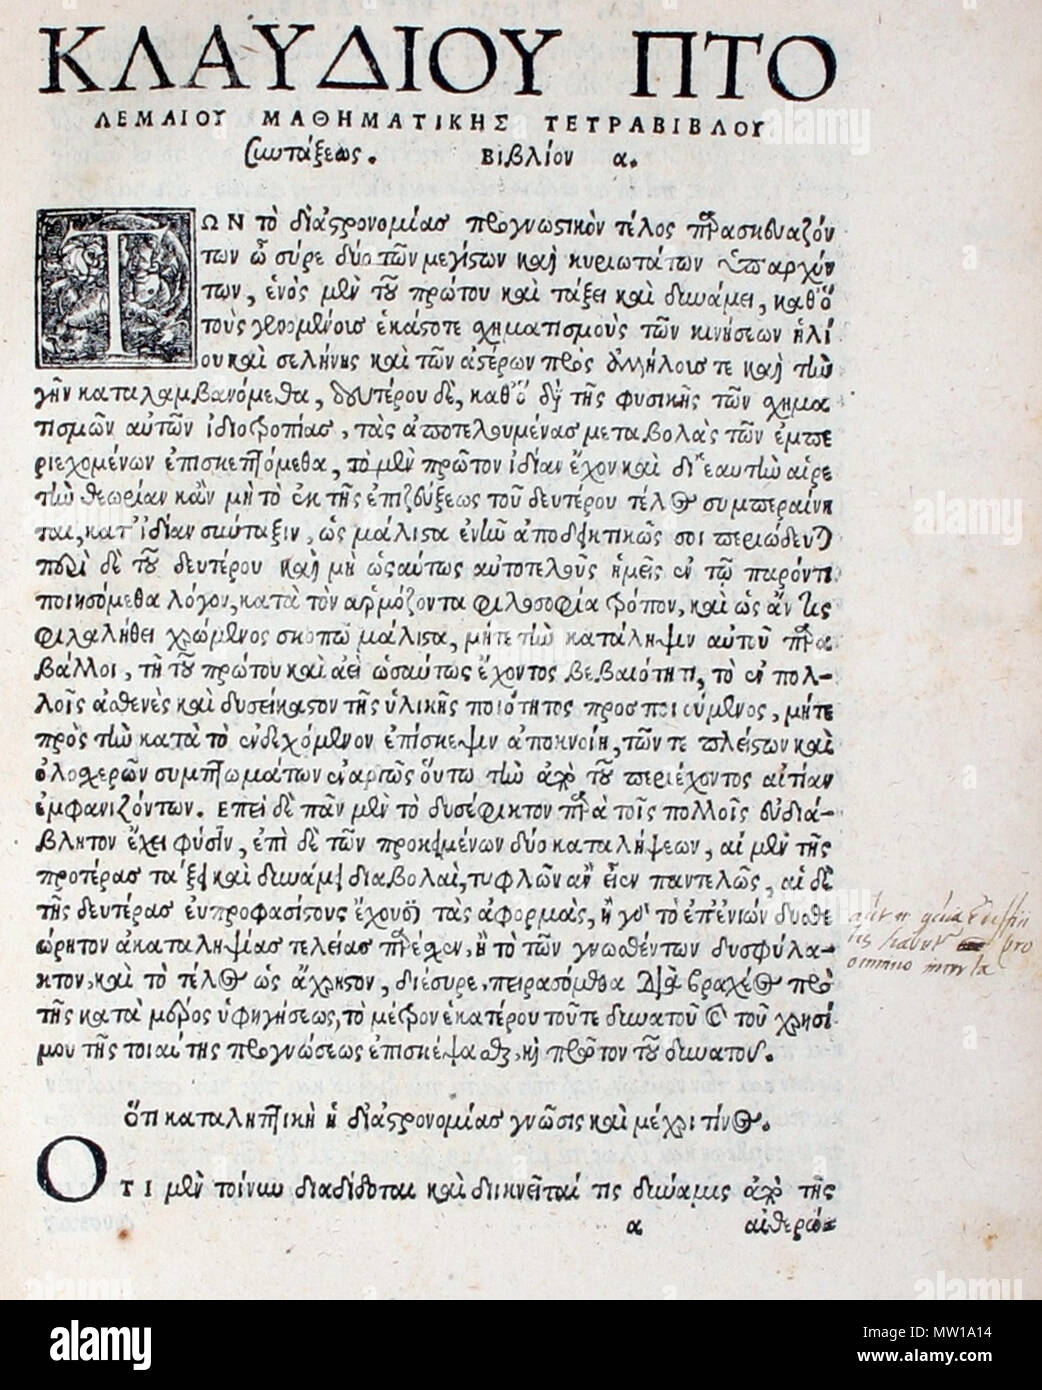 ΚΛΑΥΔΙΟΥ ΠΤΟ
ΛΕΜΑΙΟΥ ΜΑΘΗΜΑΤΙΚΗΣ ΤΕΤΡΑΒΙΒΛΟΥ
Συντάξεως. Βιβλίον α.
ΤΩΝ τὸ δἰ ἀστρονομίας προγνωστικὸν τέλος παρασκευαζόν
των ὦ σύρε δύο τῶν μεγίστων καὶ κυριωτάτων ὑπαρχόν
των, ἑνὸς μὲν τοῦ πρώτου καὶ τάξει καὶ δυνάμει, καθ' ὃ
τοὺς γινομένους ἑκάστοτε σχηματισμοὺς τῶν κινήσεων ἡλί
ου καὶ σελήνης καὶ τῶν ἀστέρων πρὸς ἀλλήλους τε καὶ τὴν
γῆν καταλαμβανόμεθα, δευτέρου δὲ, καθ' ὃ δἰ τῆς φυσικῆς τῶν σχημα
τισμῶν αὐτῶν ἰδιοτροπίας, τὰς ἀποτελουμένας μεταβολὰς τῶν ἐμπε
ριεχομένων ἐπισκεπτόμεθα, τὸ μὲν πρῶτον ἰδίαν ἔχον καὶ δι' ἑαυτὴν αἱρε
τὴν θεωρίαν κἂν μὴ τὸ ἐκ τῆς ἐπιζεύξεως τοῦ δευτέρου τέλος συμπεραίνη
ται, κατ' ἰδίαν σύνταξιν, ὡς μάλιστα ἐνῆν ἀποδεικτικῶς σοι περιώδευται
περὶ δὲ τοῦ δευτέρου καὶ μὴ ὡσαύτως αὐτοτελοῦς ἡμεῖς ἐν τῷ παρόντι
ποιησόμεθα λόγον, κατὰ τὸν ἁρμόζοντα φιλοσοφία τρόπον, καὶ ὡς ἄν τις
φιλαλήθει χρώμενος σκοπῷ μάλιστα, μήτε τὴν κατάληψιν αὐτοῦ παρα
βάλλοι, τῇ τοῦ πρώτου καὶ ἀεὶ ὡσαύτως ἔχοντος βεβαιότητι, τὸ ἐν πολ-
λοῖς ἀσθενὲς καὶ δυσείκαστον τῆς ὑλικῆς ποιότητος προσποιούμενος, μήτε
πρὸς τὴν κατὰ τὸ ἐνδεχόμενον ἐπίσκεψιν ἀποκνοίη, τῶν τε πλείστων καὶ
ὁλοσχερῶν συμπτωμάτων ἐναργῶς οὕτω τὴν ἀπὸ τοῦ περιέχοντος αἰτίαν
ἐμφανιζόντων. Επεὶ δὲ πᾶν μὲν τὸ δυσέφικτον παρὰ τοῖς πολλοῖς εὐδιά-
βλητον ἔχει φύσιν, ἐπὶ δὲ τῶν προκειμένων δύο καταλήψεων, αἱ μὲν τῆς
προτέρας τάξει καὶ δυνάμει διαβολαὶ, τυφλῶν ἂν εἶεν παντελῶς, αἱ δὲ
τῆς δευτέρας εὐπροφασίστους ἔχουσι τὰς ἀφορμὰς, ἢ γὰρ τὸ ἐπ' ἐνίων δυσθε
ώρητον ἀκαταληψίας τελείας παρέσχεν, ἢ τὸ τῶν γνωσθέντων δυσφύλα-
κτον, καὶ τὸ τέλος ὡς ἄχρηστον, διέσυρε, πειρασόμεθα διὰ βραχέος πρὸ
τῆς κατὰ μέρος ὑφηγήσεως, τὸ μέτρον ἑκατέρου τοῦτε δυνατοῦ καὶ τοῦ χρησί
μου τῆς τοιαύτης προγνώσεως ἐπισκέψασθαι, καὶ πρῶτον τοῦ δυνατοῦ.
Ὅτι καταληπτικὴ ἡ δἰ ἀστρονομίας γνῶσις καὶ μέχρι τίνος.
ΟΤΙ μὲν τοίνυν διαδίδοται καὶ διικνεῖται τις δύναμις ἀπὸ τῆς
α αἰθερώ-
omnino inerta
alamy
Image ID: MW1A14
www.alamy.com